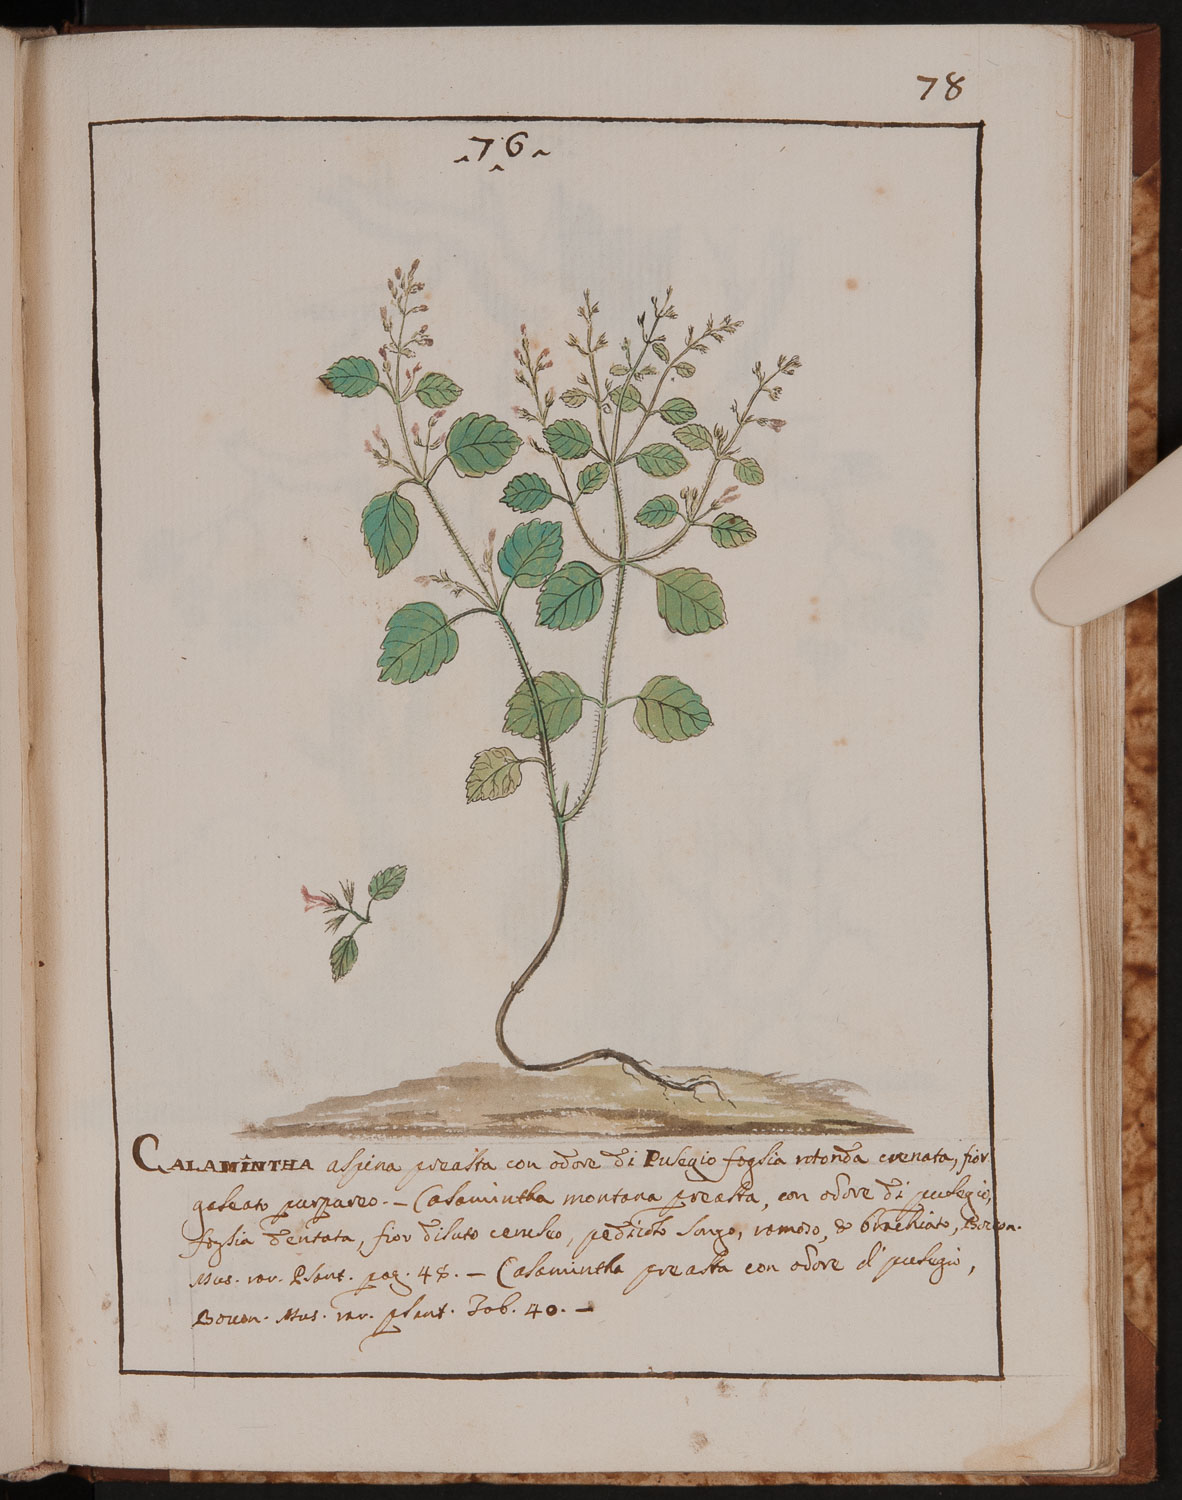 78
76
CALAMINTHA alpina preasta con odore di Pulegio foglia rotonda crenata, fior
galeato purpureo. — Calamintha montana preasta, con odore di pulegio,
foglia dentata, fior diluto ceruleo, pediculo longo, ramoso, & brachiato, Bocon.
Mus. rar. Plant. pag. 48. — Calamintha preasta con odore di pulegio,
Bocon. Mus. rar. plant. Tob. 40. —